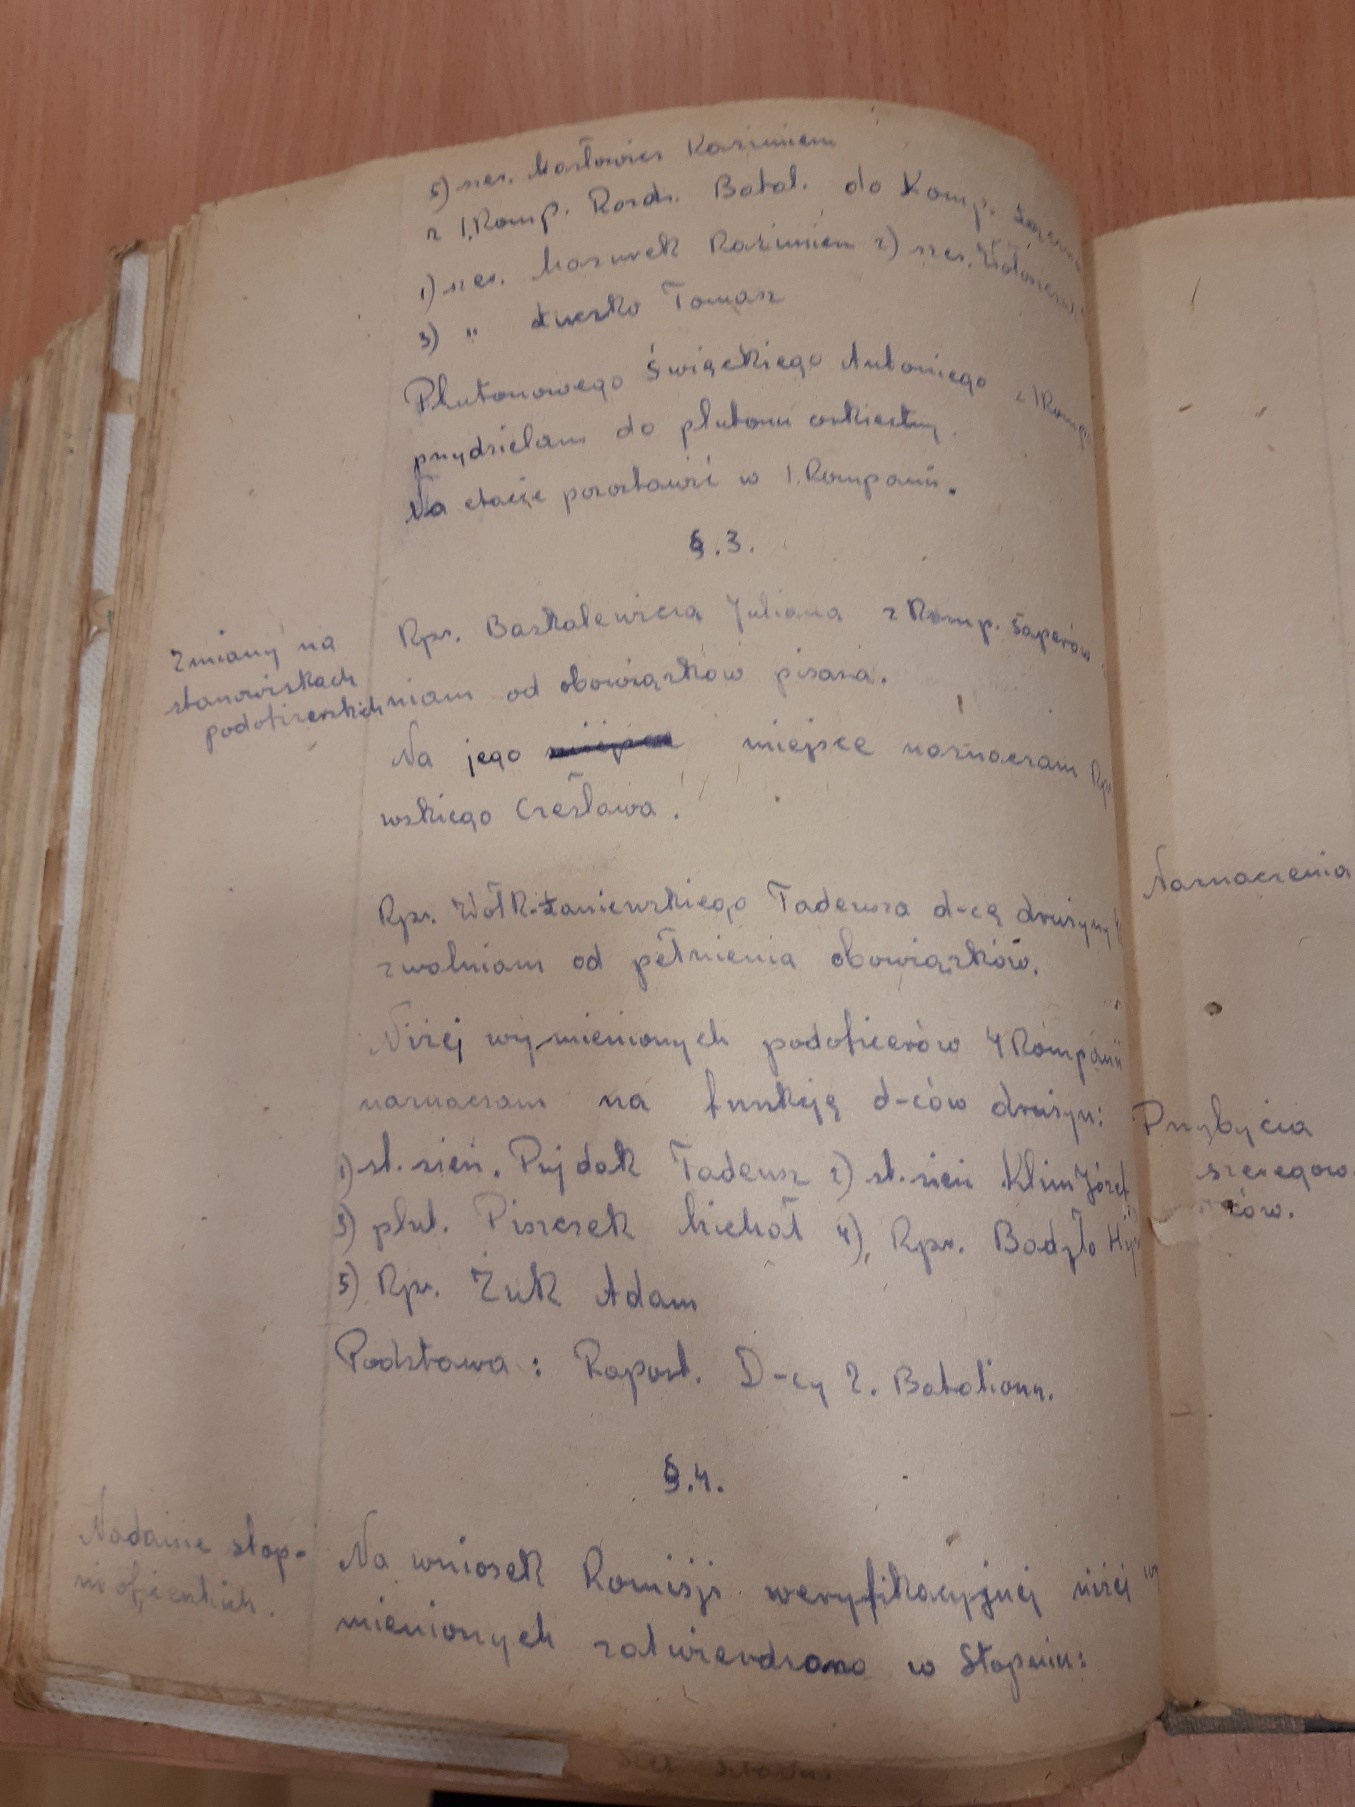 5) szer. Masłowicz Kazimierz
z 1. Komp. Rozdz. Batal. do Komp.
1) szer. Mazurek Kazimierz 2) szer.
3) " Łuczko Tomasz
Plutonowego Święckiego Antoniego z 1 Komp
przydzielam do plutonu orkiestry.
Na etacie pozostawić w 1. Kompanii.
§.3.
Zmiany na
stanowiskach
podoficerskich
Kpr. Baskalewicza Juliana z Komp. Saperów
niam od obowiązków pisarza.
Na jego miejsce naznaczam Kpr
wskiego Czesława.
Kpr. Wołk-Łaniewskiego Tadeusza d-cę drużyny
zwalniam od pełnienia obowiązków.
Niżej wymienionych podoficerów 4 Kompanii
naznaczam na funkcję d-ców drużyn:
1) st. sierż. Pujdak Tadeusz 2) st. sierż Klim Józef
3) plut. Piszczek Michał 4) Kpr. Badzło
5) Kpr. Żuk Adam
Podstawa: Raport. D-cy 2. Batalionu.
§.4.
Nadanie stop-
ni oficerskich.
Na wniosek Komisji weryfikacyjnej niżej wy
mienionych zatwierdzono w Stopniu:
Naznaczenia
Przybycia
szeregow
ców.